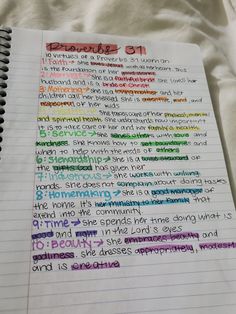 Proverbs 31
10 virtues of a Proverbs 31 woman
1: Faith → she loves Jesus with all her heart. This
is the foundation of her good works
2: Marriage → she is a faithful bride. she loves her
husband and is a bride of Christ
3: Mothering → she is a loving mother and her
children call her blessed. She is attentive, kind, and
respectful of her kids
She takes care of her physical, mental
and spiritual health. she understands how important
it is to take care of her and her family's health
5: Service → she serves others with love and
kindness. She knows how to set boundaries and
when to help with the needs of others
6: Stewardship → she is a good steward of
the gifts God has given her
7: Industrious → she works with willing
hands. She does not complain about doing tasks
8: Homemaking → she is a good manager of
the home. It's her ministry to her family that
extend into the community
9: Time → she spends her time doing what is
good and right in the Lord's eyes
10: Beauty → she embraces beauty and
godliness. she dresses appropriately, modestly
and is creative